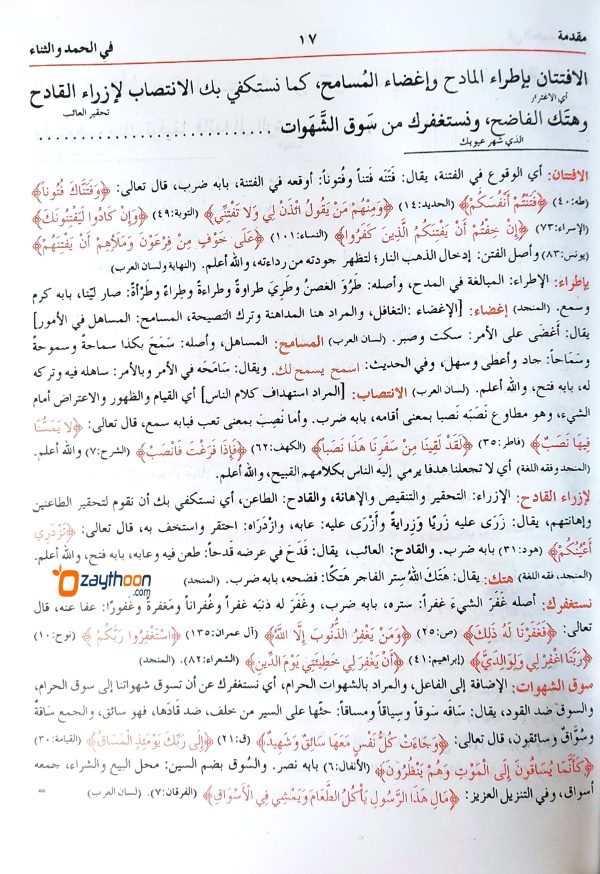 مقدمة ١٧ في الحمد والثناء
الافتتان بإطراء المادح وإغضاء المُسامح، كما نستكفي بك الانتصاب لإزراء القادح
أي الاغترار تحقير العائب
وهتك الفاضح، ونستغفرك من سَوق الشَّهَوات
الذي شهر عيوبك
الافتتان: أي الوقوع في الفتنة، يقال: فَتَنَه فَتناً وفُتوناً: أوقعه في الفتنة، بابه ضرب، قال تعالى: ﴿وَفَتَنَّاكَ فُتُوناً﴾
(طه:٤٠) ﴿فَتَنْتُمْ أَنْفُسَكُمْ﴾ (الحديد:١٤) ﴿وَمِنْهُمْ مَنْ يَقُولُ ائْذَنْ لِي وَلا تَفْتِنِّي﴾ (التوبة:٤٩) ﴿وَإِنْ كَادُوا لَيَفْتِنُونَكَ﴾
(الإسراء:٧٣) ﴿إِنْ خِفْتُمْ أَنْ يَفْتِنَكُمُ الَّذِينَ كَفَرُوا﴾ (النساء:١٠١) ﴿عَلَى خَوْفٍ مِنْ فِرْعَوْنَ وَمَلَأِهِمْ أَنْ يَفْتِنَهُمْ﴾
(يونس:٨٣) وأصل الفتن: إدخال الذهب النار؛ لتظهر جودته من رداءته، والله أعلم. (النهاية ولسان العرب)
بإطراء: الإطراء: المبالغة في المدح، وأصله: طَرُوَ الغصنُ وطَرِيَ طراوةً وطراءةً وطِراءً وطَرْأةً: صار ليّنا، بابه كرم
وسمع. (المنجد) إغضاء: [الإغضاء :التغافل، والمراد هنا المداهنة وترك النصيحة، المسامح: المساهل في الأمور]
يقال: أَغضَى على الأمر: سكت وصبر. (لسان العرب) المسامح: المساهل، وأصله: سَمَحَ بكذا سماحةً وسموحةً
وسَمَاحاً: جاد وأعطى وسهل، وفي الحديث: اسمح يسمح لك. ويقال: سَامَحَه في الأمر وبالأمر: ساهله فيه وتركه
له، بابه فتح، والله أعلم. (لسان العرب) الانتصاب: [المراد استهداف كلام الناس] أي القيام والظهور والاعتراض أمام
الشيء، وهو مطاوع نَصَبَه نَصبا بمعنى أقامه، بابه ضرب. وأما نَصِبَ بمعنى تعب فبابه سمع، قال تعالى: ﴿لا يَمَسُّنَا
فِيهَا نَصَبٌ﴾ (فاطر:٣٥) ﴿لَقَدْ لَقِينَا مِنْ سَفَرِنَا هَذَا نَصَباً﴾ (الكهف:٦٢) ﴿فَإِذَا فَرَغْتَ فَانْصَبْ﴾ (الشرح:٧) والله أعلم.
(المنجد وفقه اللغة) أي لا تجعلنا هدفا يرمي إليه الناس بكلامهم القبيح، والله أعلم.
لإزراء القادح: الإزراء: التحقير والتنقيص والإهانة، والقادح: الطاعن، أي نستكفي بك أن نقوم لتحقير الطاعنين
وإهانتهم، يقال: زَرَى عليه زَريًا وزِرايةً وأَزْرَى عليه: عابه، وازْدَراه: احتقر واستخف به، قال تعالى: ﴿تَزْدَرِي
أَعْيُنُكُمْ﴾ (هود:٣١) بابه ضرب. والقادح: العائب، يقال: قَدَحَ في عرضه قَدحاً: طعن فيه وعابه، بابه فتح، والله أعلم.
(المنجد، فقه اللغة) هتك: يقال: هَتَكَ اللهُ سِتر الفاجر هَتكًا: فضحه، بابه ضرب. (المنجد)
نستغفرك: أصله غَفَرَ الشيءَ غفراً: ستره، بابه ضرب، وغَفَرَ له ذنبَه غَفراً وغُفراناً ومَغفرةً وغَفورًا: عفا عنه، قال
تعالى: ﴿فَغَفَرْنَا لَهُ ذَلِكَ﴾ (ص:٢٥) ﴿وَمَنْ يَغْفِرُ الذُّنُوبَ إِلَّا اللَّهُ﴾ (آل عمران:١٣٥) ﴿اسْتَغْفِرُوا رَبَّكُمْ﴾ (نوح:١٠)
﴿رَبَّنَا اغْفِرْ لِي وَلِوَالِدَيَّ﴾ (إبراهيم:٤١) ﴿أَنْ يَغْفِرَ لِي خَطِيئَتِي يَوْمَ الدِّينِ﴾ (الشعراء:٨٢). (المنجد)
سوق الشهوات: الإضافة إلى الفاعل، والمراد بالشهوات الحرام، أي نستغفرك عن أن تسوق شهواتنا إلى سوق الحرام،
والسوق ضد القود، يقال: سَاقَه سَوقاً وسِياقاً ومساقاً: حثّها على السير من خلف، ضد قَادَها، فهو سائق، والجمع سَاقَةٌ
وسُوَّاق وسائقون، قال تعالى: ﴿وَجَاءَتْ كُلُّ نَفْسٍ مَعَهَا سَائِقٌ وَشَهِيدٌ﴾ (ق:٢١) ﴿إِلَى رَبِّكَ يَوْمَئِذٍ الْمَسَاقُ﴾ (القيامة:٣٠)
﴿كَأَنَّمَا يُسَاقُونَ إِلَى الْمَوْتِ وَهُمْ يَنْظُرُونَ﴾ (الأنفال:٦) بابه نصر. والسُوق بضم السين: محل البيع والشراء، جمعه
أسواق، وفي التنزيل العزيز: ﴿مَالِ هَذَا الرَّسُولِ يَأْكُلُ الطَّعَامَ وَيَمْشِي فِي الْأَسْوَاقِ﴾ (الفرقان:٧). (لسان العرب) =
Ozaythoon
.com